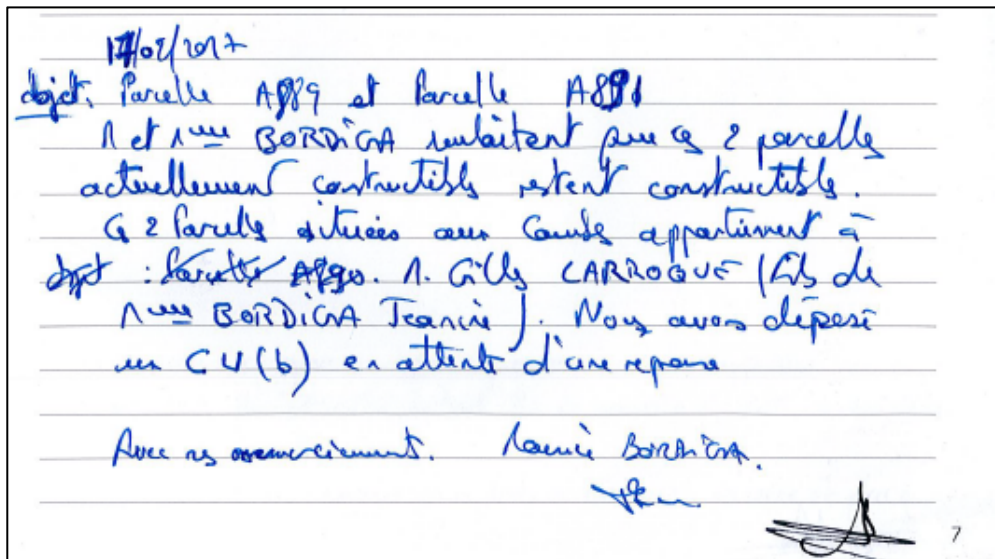 17/02/2017
objet: Parcelle A889 et Parcelle A891
M et Mme BORDIGA souhaitent que ces 2 parcelles
actuellement constructibles restent constructibles.
Ces 2 Parcelles situées aux Combes appartiennent à
objet : Parcelle A890. M. Gilles CARROQUE (fils de
Mme BORDIGA Jeanine). Nous avons déposé
un CU (b) en attente d'une réponse
Avec nos remerciements. BORDIGA.
7